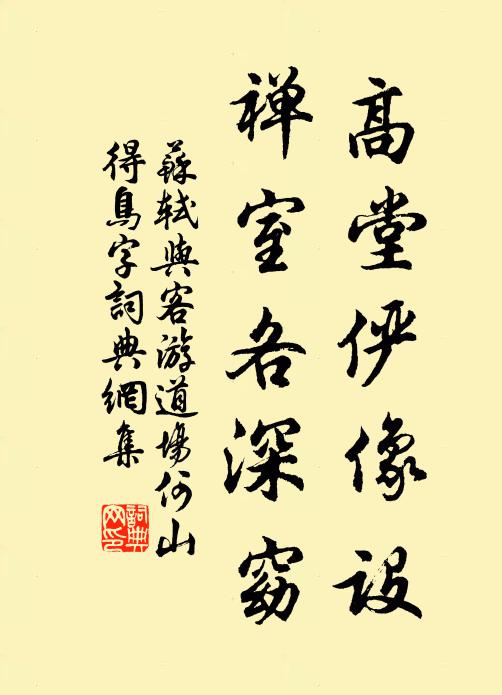 高堂儼像設
禪室各深窈
蘇軾與客游道場何山
得鳥字詞典網集
詞典
網印